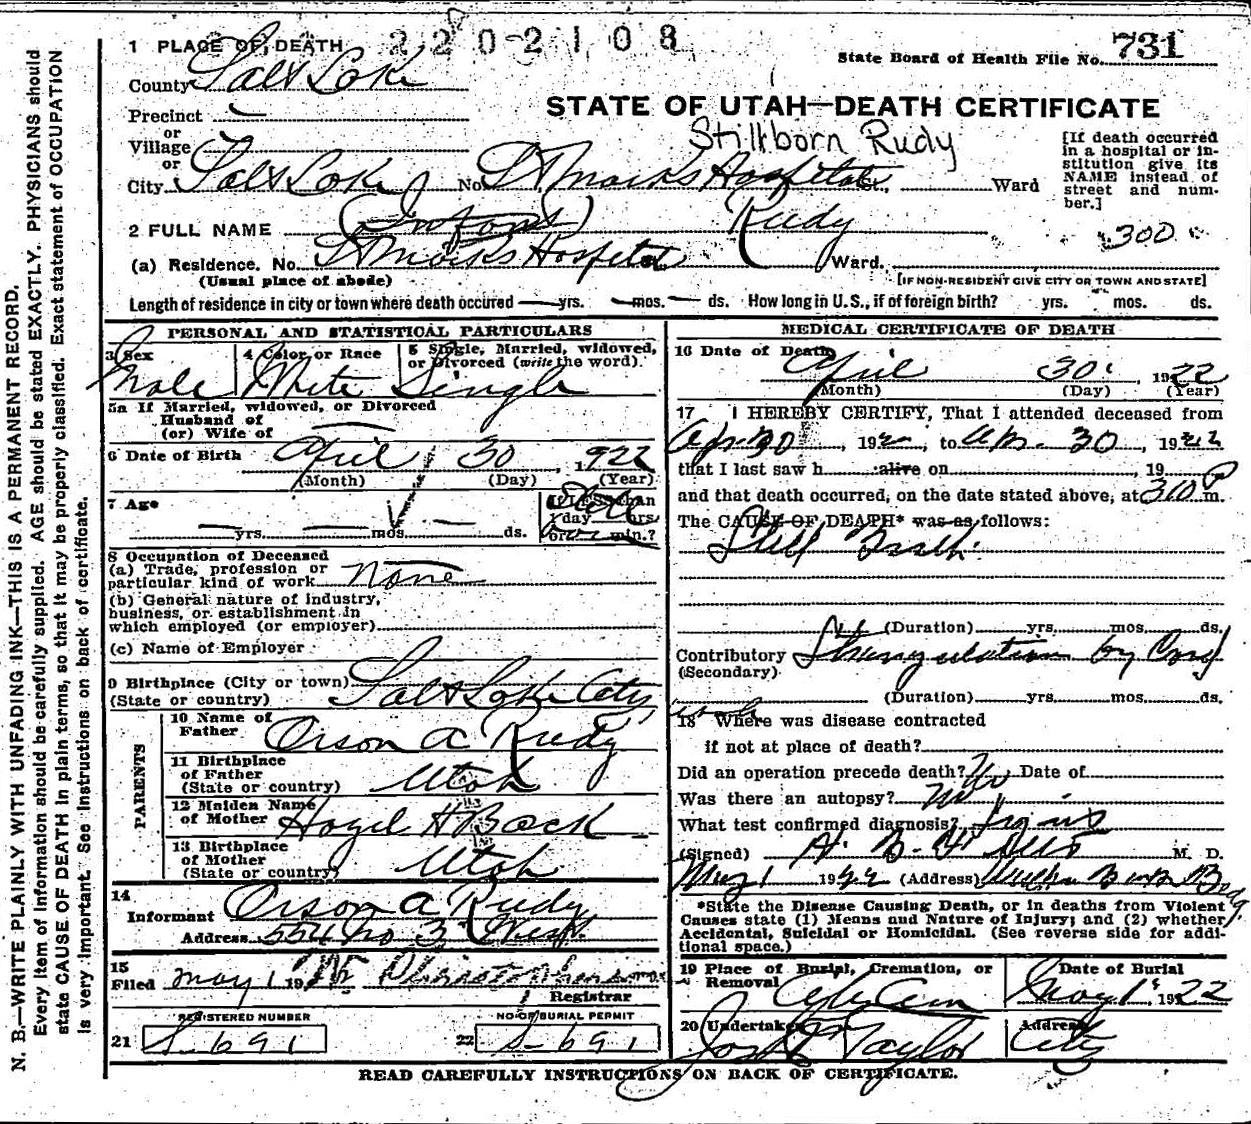 1 PLACE OF DEATH 2202108
State Board of Health File No. 731
County Salt Lake
STATE OF UTAH—DEATH CERTIFICATE
Precinct
or
Village
or
Stillborn Rudy
[If death occurred in a hospital or in-
stitution give its
NAME instead of
street and num-
ber.]
City Salt Lake No. St Marks Hospital St., Ward
2 FULL NAME (Infant) Rudy
300
(a) Residence. No. St Marks Hospital Ward.
(Usual place of abode) [IF NON-RESIDENT GIVE CITY OR TOWN AND STATE]
Length of residence in city or town where death occured — yrs. — mos. — ds. How long in U.S., if of foreign birth? yrs. mos. ds.
PERSONAL AND STATISTICAL PARTICULARS
3 Sex 4 Color or Race 5 Single, Married, widowed,
or Divorced (write the word).
Male White Single
5a If Married, widowed, or Divorced
Husband of
(or) Wife of —
6 Date of Birth April 30, 1922
(Month) (Day) (Year)
7 Age If LESS than
1 day hrs.
— yrs. — mos. — ds. or min.?
8 Occupation of Deceased
(a) Trade, profession or
particular kind of work None
(b) General nature of industry,
business, or establishment in
which employed (or employer)
(c) Name of Employer
9 Birthplace (City or town) Salt Lake City
(State or country)
PARENTS
10 Name of
Father Orson A Rudy
11 Birthplace
of Father
(State or country) Utah
12 Maiden Name
of Mother Hazel H Back
13 Birthplace
of Mother
(State or country) Utah
14
Informant Orson A Rudy
Address 554 No 3 West
15
Filed May 1 19
Registrar
REGISTERED NUMBER NO OF BURIAL PERMIT
21 S-691 22 S-691
MEDICAL CERTIFICATE OF DEATH
16 Date of Death April 30, 1922
(Month) (Day) (Year)
17 I HEREBY CERTIFY, That I attended deceased from
Apr. 30, 192, to Apr. 30, 1922
that I last saw h alive on , 19
and that death occurred, on the date stated above, at 310 P m.
The CAUSE OF DEATH* was as follows:
Still Birth
(Duration) yrs. mos. ds.
Contributory Strangulation by Cord
(Secondary)
(Duration) yrs. mos. ds.
18 Where was disease contracted
if not at place of death?
Did an operation precede death? No Date of
Was there an autopsy? No
What test confirmed diagnosis?
(Signed) M. D.
May 1 1922 (Address)
*State the Disease Causing Death, or in deaths from Violent
Causes state (1) Means and Nature of Injury; and (2) whether
Accidental, Suicidal or Homicidal. (See reverse side for addi-
tional space.)
19 Place of Burial, Cremation, or Date of Burial
Removal City Cem May 1, 1922
20 Undertaker Address
Taylor City
READ CAREFULLY INSTRUCTIONS ON BACK OF CERTIFICATE.
N. B.—WRITE PLAINLY WITH UNFADING INK—THIS IS A PERMANENT RECORD.
Every item of information should be carefully supplied. AGE should be stated EXACTLY. PHYSICIANS should
state CAUSE OF DEATH in plain terms, so that it may be properly classified. Exact statement of OCCUPATION
is very important. See instructions on back of certificate.